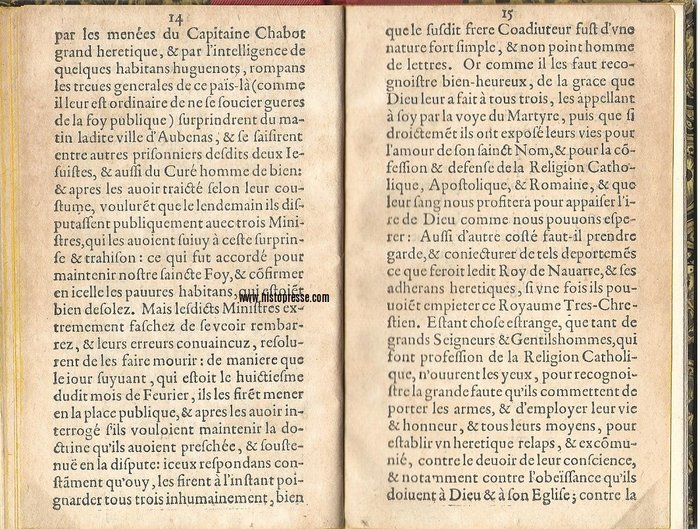 14
par les menées du Capitaine Chabot
grand heretique, & par l'intelligence de
quelques habitans huguenots, rompans
les treues generales de ce païs-là (comme
il leur est ordinaire de ne se soucier gueres
de la foy publique) surprindrent du ma-
tin ladite ville d'Aubenas, & se saisirent
entre autres prisonniers desdits deux Ie-
suistes, & aussi du Curé homme de bien:
& apres les auoir traicté selon leur cou-
stume, voulurēt que le lendemain ils dis-
putassent publiquement auec trois Mini-
stres, qui les auoient suiuy à ceste surprin-
se & trahison: ce qui fut accordé pour
maintenir nostre saincte Foy, & cōfirmer
en icelle les pauures habitans, qui estoiēt
bien desolez. Mais lesdicts Ministres ex-
tremement faschez de se veoir rembar-
rez, & leurs erreurs conuaincuz, resolu-
rent de les faire mourir: de maniere que
le iour suyuant, qui estoit le huictiesme
dudit mois de Feurier, ils les firēt mener
en la place publique, & apres les auoir in-
terrogé s'ils vouloient maintenir la do-
ctine qu'ils auoient preschée, & souste-
nuë en la dispute: iceux respondans con-
stāment qu'ouy, les firent à l'instant poi-
gnarder tous trois inhumainement, bien
www.histopresse.com
15
que le susdit frere Coadiuteur fust d'vne
nature fort simple, & non point homme
de lettres. Or comme il les faut reco-
gnoistre bien-heureux, de la grace que
Dieu leur a fait à tous trois, les appellant
à soy par la voye du Martyre, puis que si
droictemēt ils ont exposé leurs vies pour
l'amour de son sainct Nom, & pour la cō-
fession & defense de la Religion Catho-
lique, Apostolique, & Romaine, & que
leur sang nous profitera pour appaiser l'i-
re de Dieu comme nous pouuons espe-
rer: Aussi d'autre costé faut-il prendre
garde, & coniecturer de tels deportemēs
ce que feroit ledit Roy de Nauarre, & ses
adherans heretiques, si vne fois ils pou-
uoiēt empieter ce Royaume Tres-Chre-
stien. Estant chose estrange, que tant de
grands Seigneurs & Gentilshommes, qui
font profession de la Religion Catholi-
que, n'ouurent les yeux, pour recognoi-
stre la grande faute qu'ils commettent de
porter les armes, & d'employer leur vie
& honneur, & tous leurs moyens, pour
establir vn heretique relaps, & excōmu-
nié, contre le deuoir de leur conscience,
& notamment contre l'obeïssance qu'ils
doiuent à Dieu & à son Eglise; contre la